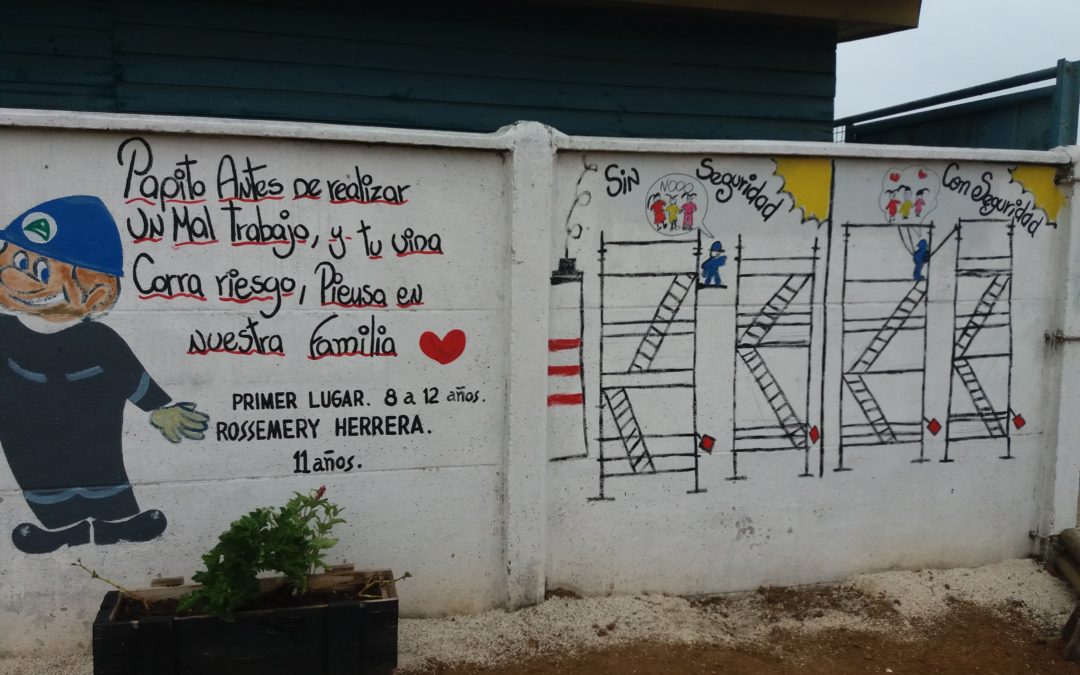 Papito Antes de realizar
un Mal Trabajo, y tu vida
Corra riesgo, Piensa en
nuestra Familia
PRIMER LUGAR. 8 a 12 años.
ROSSEMERY HERRERA.
11 años.
Sin Seguridad
NOOO
Con Seguridad